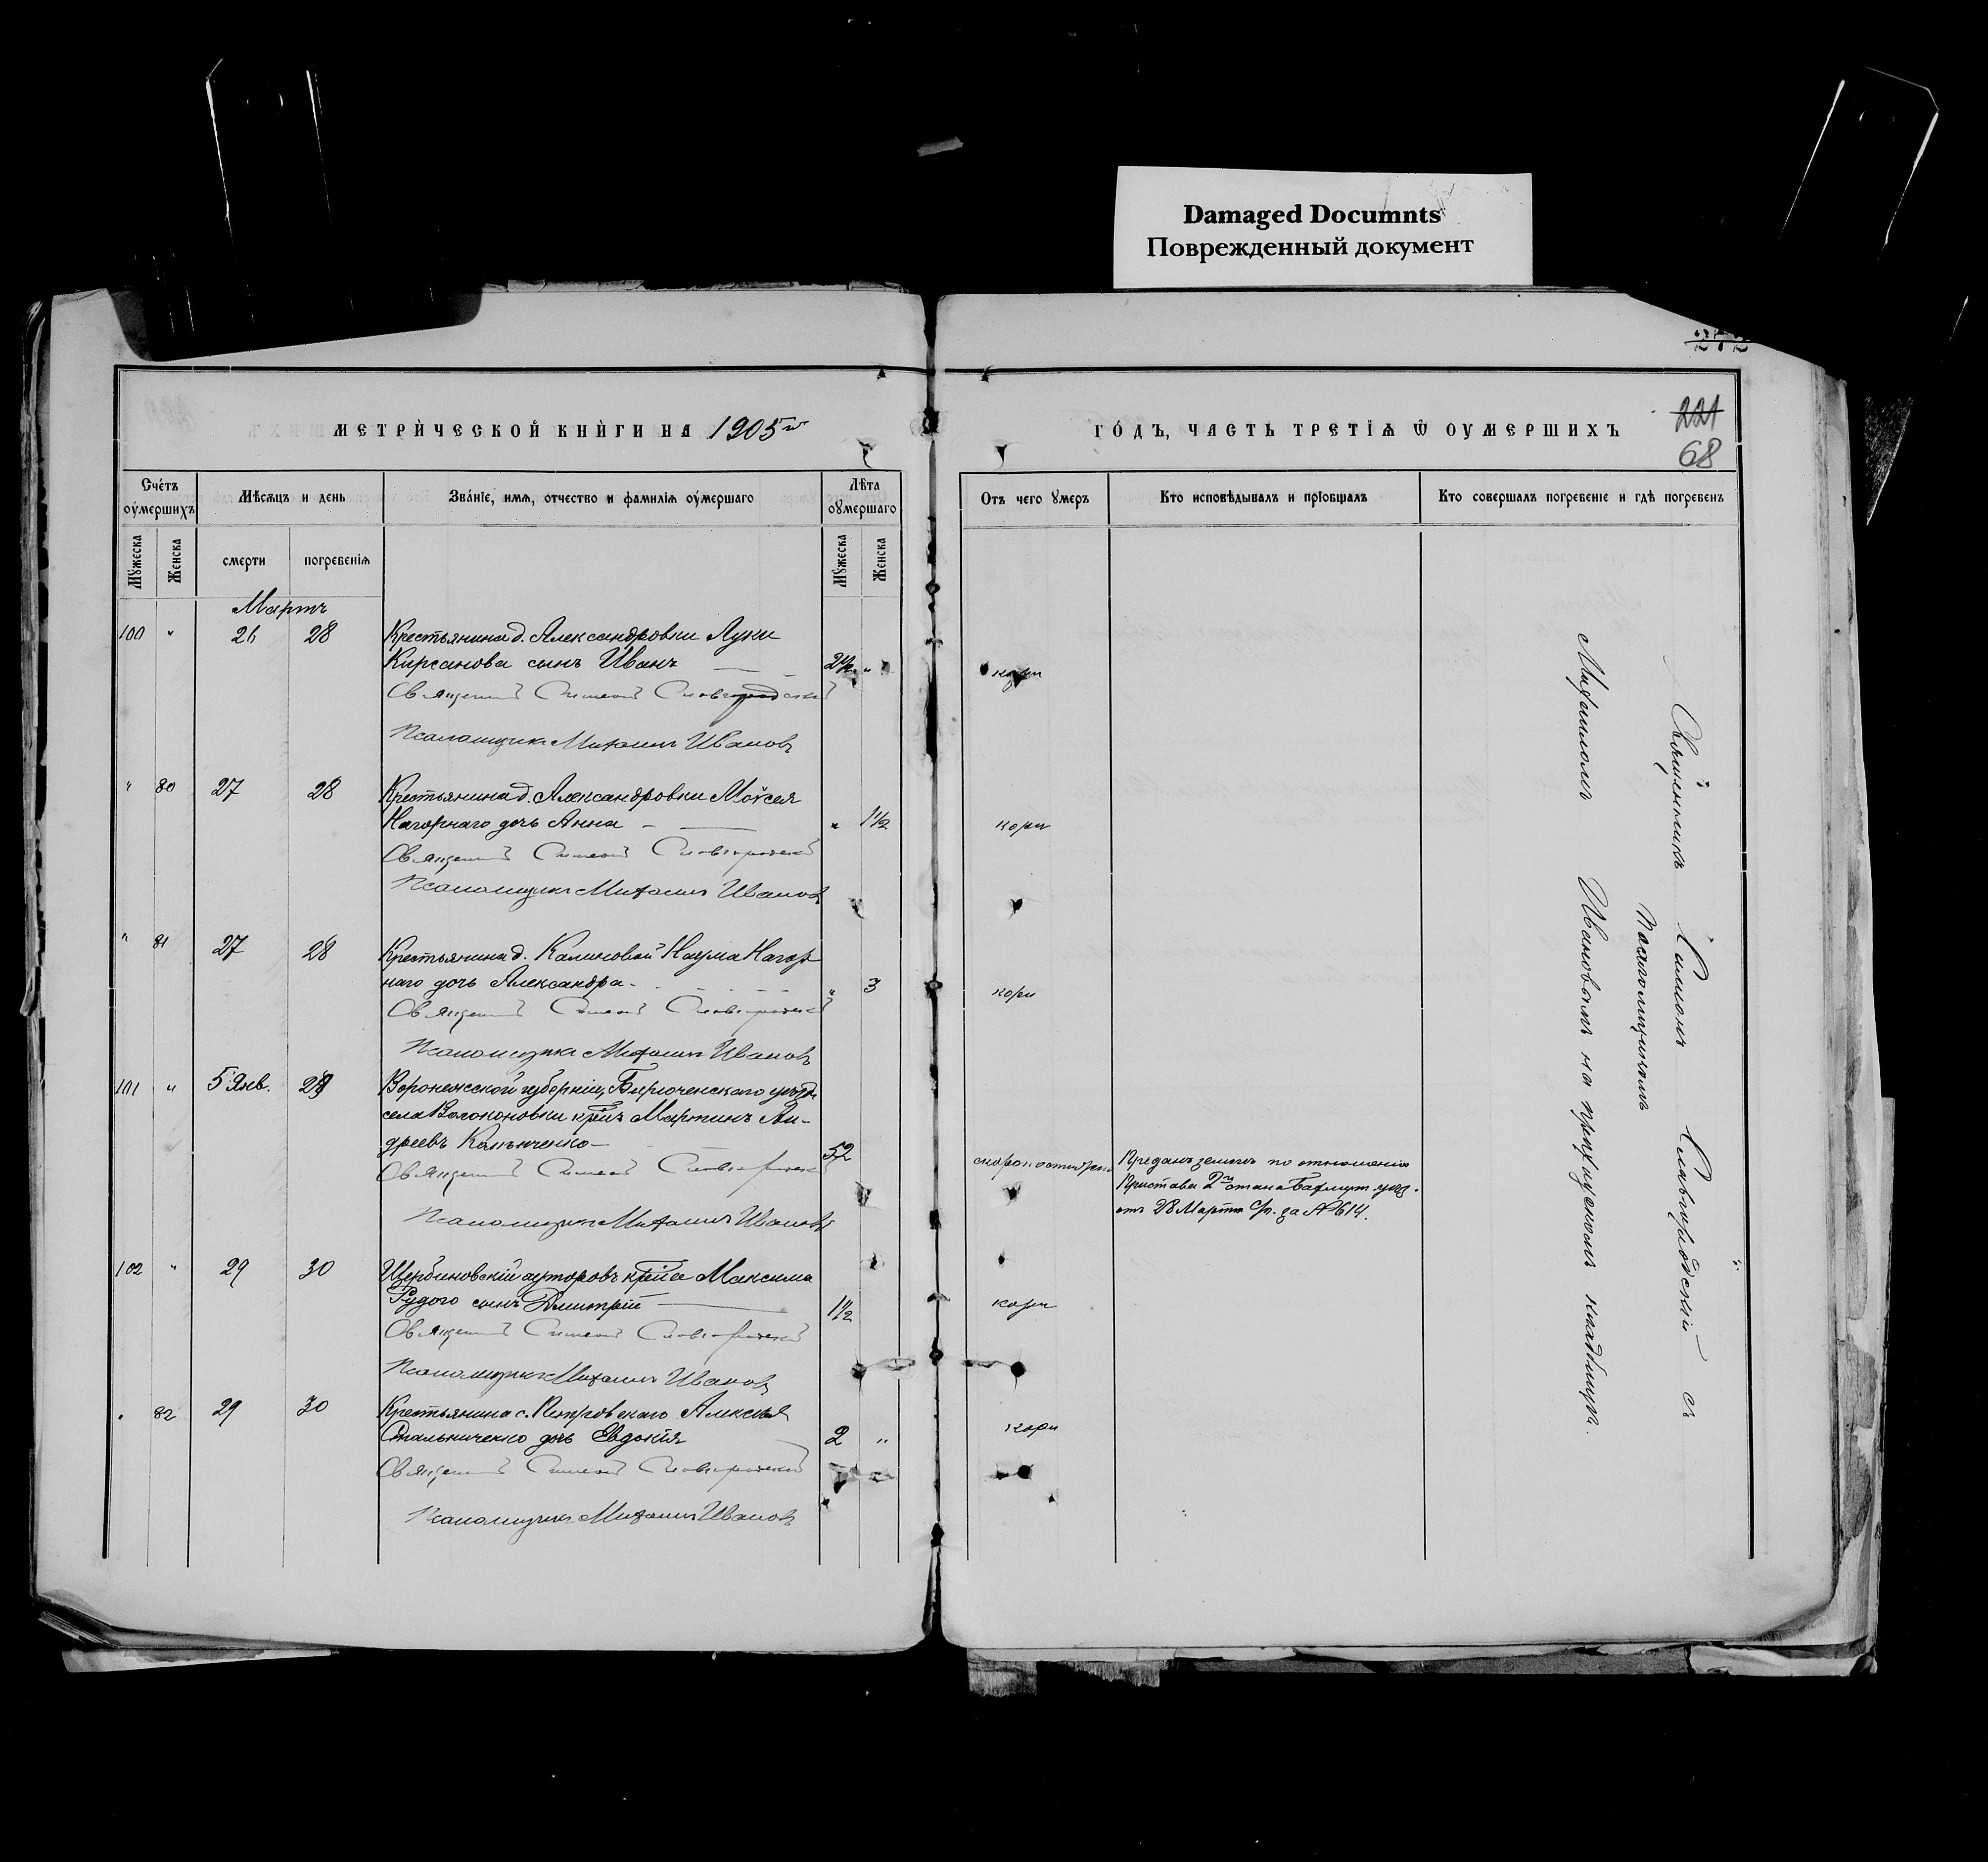 Damaged Documnts
Поврежденный документ
272
МЕТРИЧЕСКОЙ КНИГИ НА 1905й
ГОДЪ, ЧАСТЬ ТРЕТІЯ Ѿ ОУМЕРШИХЪ
221
68
Счетъ оумершихъ
Мѣсяцъ и день
Званіе, имя, отчество и фамилія оумершаго
Лѣта оумершаго
Отъ чего умеръ
Кто исповѣдывалъ и пріобщалъ
Кто совершалъ погребеніе и гдѣ погребенъ
Мужеска
Женска
смерти
погребенія
Мужеска
Женска
Мартъ
100 " 26 28 Крестьянина д. Александровки Луки
Кирсанова сынъ Иванъ 2½ " кори
Священникъ Симеонъ Славгородскій
Псаломщикъ Михаилъ Ивановъ
" 80 27 28 Крестьянина д. Александровки Моѵсея
Нагорнаго дочь Анна " 1½ кори
Священникъ Симеонъ Славгородскій
Псаломщикъ Михаилъ Ивановъ
" 81 27 28 Крестьянина д. Калиновой Наума Нагор
наго дочь Александра " 3 кори
Священникъ Симеонъ Славгородскій
Псаломщикъ Михаилъ Ивановъ
101 " 5 Янв. 29 Воронежской губерніи, Бирюченскаго уѣзда
села Волоконовки кр–нъ Мартинъ Ан-
дреевъ 52 скоропостижно
Преданъ землѣ по отношенію
Пристава 2го стана Бахмут. уѣзд.
отъ 28 Марта с/г. за № 614.
Священникъ Симеонъ Славгородскій
Псаломщикъ Михаилъ Ивановъ
102 " 29 30 Щербиновскій хуторовъ кр–на Максима
Рудого сынъ Дмитрій 1½ кори
Священникъ Симеонъ Славгородскій
Псаломщикъ Михаилъ Ивановъ
" 82 29 30 Крестьянина с. Петровскаго Алексѣя
Стальниченко дочь Евдокія 2 " кори
Священникъ Симеонъ Славгородскій
Псаломщикъ Михаилъ Ивановъ
Священникъ Симеонъ Славгородскій съ
Псаломщикомъ
Михаиломъ Ивановымъ на приходскомъ кладбищѣ.